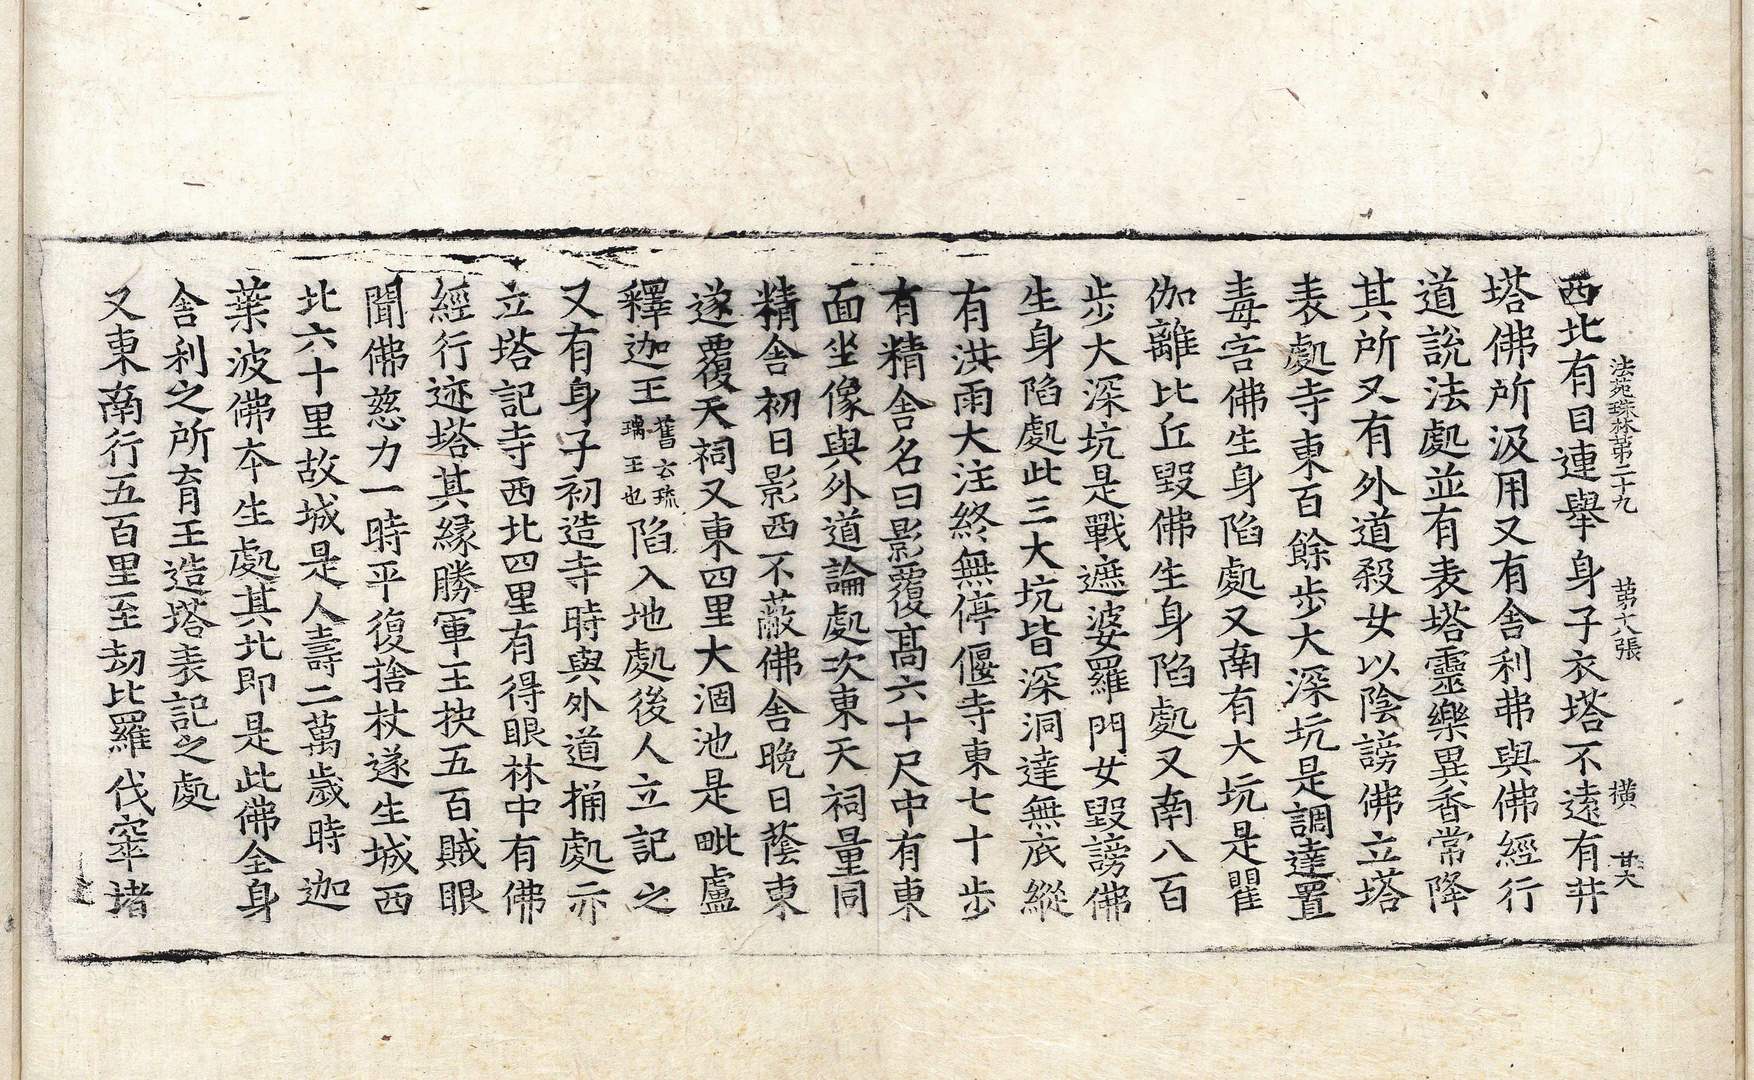 法苑珠林第二十九 第十八張 橫 甘大
西北有目連舉身子衣塔不遠有井
塔佛所汲用又有舍利弗與佛經行
道說法處並有表塔靈樂異香常降
其所又有外道殺女以陰謗佛立塔
表處寺東百餘步大深坑是調達置
毒害佛生身陷處又南有大坑是瞿
伽離比丘毀佛生身陷處又南八百
步大深坑是戰遮婆羅門女毀謗佛
生身陷處此三大坑皆深洞達無底縱
有洪雨大注終無停偃寺東七十步
有精舍名曰影覆高六十尺中有東
面坐像與外道論處次東天祠量同
精舍初日影西不蔽佛舍晚日蔭東
遂覆天祠又東四里大涸池是毗盧
釋迦王舊云琉璃王也陷入地處後人立記之
又有身子初造寺時與外道捔處亦
立塔記寺西北四里有得眼林中有佛
經行迹塔其緣勝軍王抉五百賊眼
聞佛慈力一時平復捨杖遂生城西
北六十里故城是人壽二萬歲時迦
葉波佛本生處其北即是此佛全身
舍利之所育王造塔表記之處
又東南行五百里至劫比羅伐窣堵